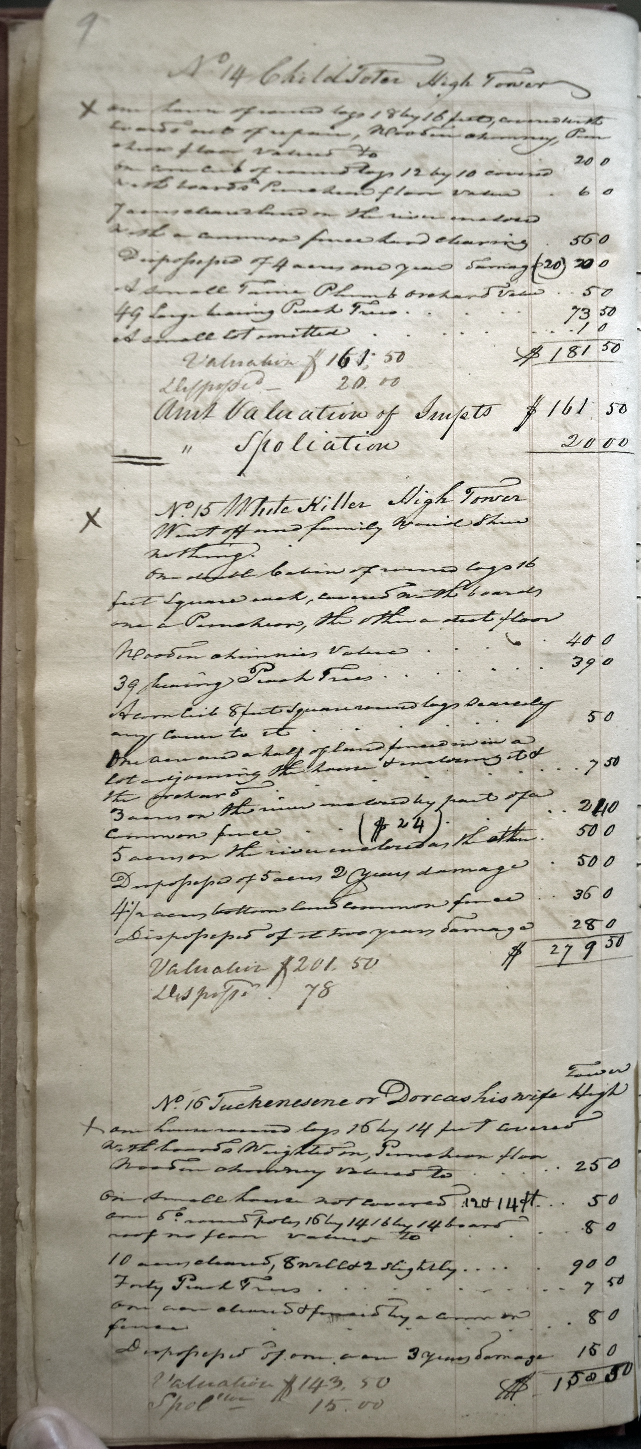 9
No 14 Child Toter High Tower
X one house of round logs 18 by 16 feet, covered with
boards out of repair, Wooden chimney, Pun
cheon floor valued to 20 0
on corn crib of round logs 12 by 10 covered
with boards Puncheon floor value 6 0
7 acres cleared land on the river inclosed
with a common fence hard clearing 56 0
Dispossessed of 4 acres one year damage (20) 20 0
A small Plumb orchard value 5 0
49 large bearing Peach Trees 73 50
A small lot omitted 1 0
Valuation $ 161.50 $ 181 50
Disposed 20.00
Amt Valuation of Impts $ 161 50
" Spoliation 20 00
X No 15 White Killer High Tower
Went off and family would shew
nothing.
One double Cabin of round logs 16
feet Square each, covered with boards
one a Puncheon, the other a dirt floor
Wooden chimnies value 40 0
39 bearing Peach Trees 39 0
A corn crib 8 feet square round logs scarcely
any cover to it 5 0
One acre and a half of land fenced in in a
lot adjoining the house & inclosing it &
the orchard 7 50
3 acres on the river inclosed by part of a
common fence ($ 24) 24 0
5 acres on the river inclosed as the other 50 0
Dispossessed of 5 acres 2 years damage 50 0
4 1/2 acres bottom land common fence 36 0
Dispossessed of it two years damage 28 0
Valuation $ 201.50 $ 279 50
Disposs 78
No 16 Tuckenesene or Dorcas his wife High Tower
X one house round logs 16 by 14 feet covered
with boards Weighted on, Puncheon floor
Wooden chimney valued to 25 0
One small house not covered 12 & 14 ft 5 0
one do round poles 16 by 14 16 by 14 board
roof no floor valued to 8 0
10 acres cleared, 8 well & 2 slightly 90 0
Forty Peach Trees 7 50
one acre cleared & fenced by a common
fence 8 0
Dispossessed of one acre 3 years damage 15 0
Valuation $ 143.50 $ 158 50
Spoltion 15.00